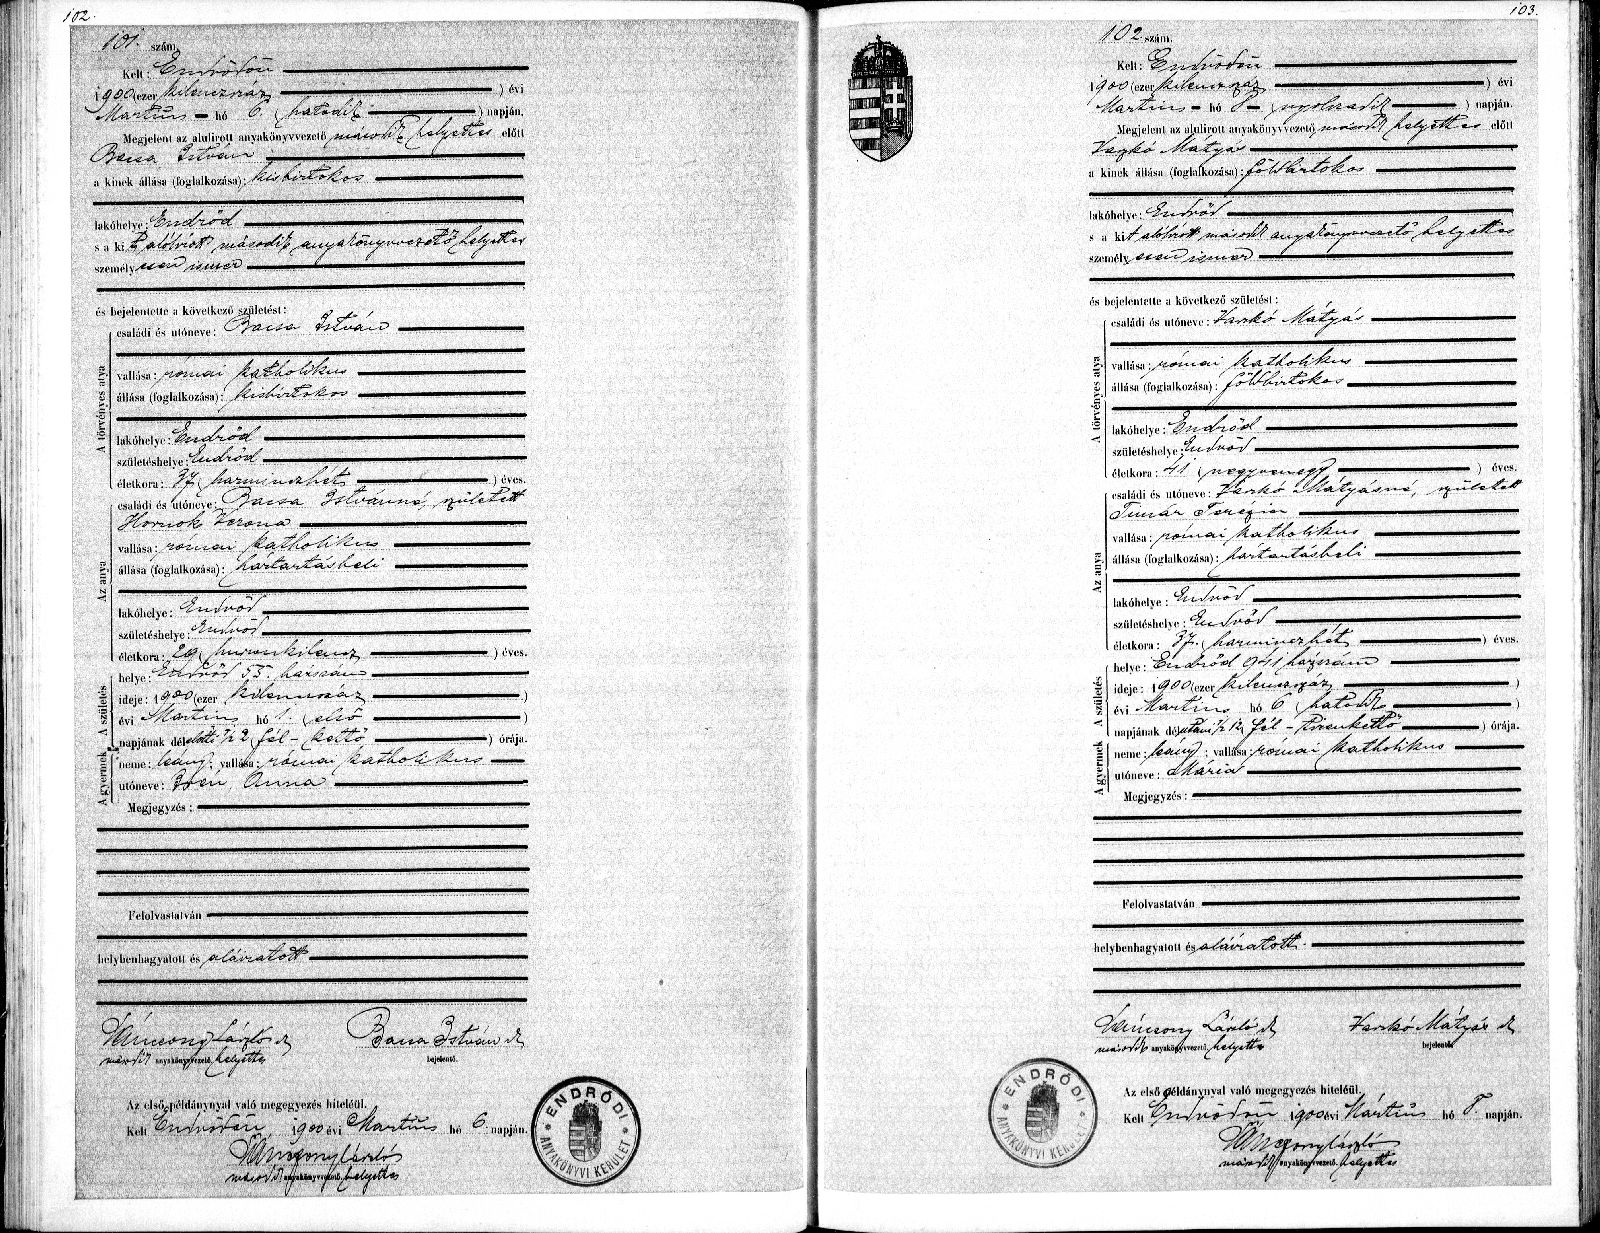 102.
101. szám.
Kelt: Endrődön
1900 (ezer kilenczszáz) évi
Martius hó 6. (hatodik) napján.
Megjelent az alulirott anyakönyvvezető második helyettes előtt
Bacsa István
a kinek állása (foglalkozása): kisbirtokos
lakóhelye: Endrőd
s a kit alólirott második anyakönyvvezető helyettes
személyesen ismer
és bejelentette a következő születést:
A törvényes atya
családi és utóneve: Bacsa István
vallása: római katholikus
állása (foglalkozása): kisbirtokos
lakóhelye: Endrőd
születéshelye: Endrőd
életkora: 37 (harminczhét) éves.
Az anya
családi és utóneve: Bacsa Istvánné, született
Hornok Verona
vallása: római katholikus
állása (foglalkozása): háztartásbeli
lakóhelye: Endrőd
születéshelye: Endrőd
életkora: 29 (huszonkilencz) éves.
A születés
helye: Endrőd 55. házszám
ideje: 1900 (ezer kilenczszáz)
évi Martius hó 1. (első)
napjának délelőtti 1/2 2 fél - kettő) órája.
A gyermek
neme: leány; vallása: római katholikus
utóneve: Anna
Megjegyzés:
Felolvastatván
helybenhagyatott és aláiratott
László
Bacsa István
második anyakönyvvezető helyettes
bejelentő.
Az első példánynyal való megegyezés hiteléül.
Kelt Endrődön 1900 évi Martius hó 6. napján.
László
második anyakönyvvezető helyettes
ENDRŐDI ANYAKÖNYVI KERÜLET
103.
102 szám.
Kelt: Endrődön
1900 (ezer kilenczszáz) évi
Martius hó 8 (nyolczadik) napján.
Megjelent az alulirott anyakönyvvezető második helyettes előtt
Vaskó Mátyás
a kinek állása (foglalkozása): földbirtokos
lakóhelye: Endrőd
s a kit alólirott második anyakönyvvezető helyettes
személyesen ismer
és bejelentette a következő születést:
A törvényes atya
családi és utóneve: Vaskó Mátyás
vallása: római katholikus
állása (foglalkozása): földbirtokos
lakóhelye: Endrőd
születéshelye: Endrőd
életkora: 41 (negyvenegy) éves.
Az anya
családi és utóneve: Vaskó Mátyásné, született
Timár Terezia
vallása: római katholikus
állása (foglalkozása): háztartásbeli
lakóhelye: Endrőd
születéshelye: Endrőd
életkora: 37. (harminczhét) éves.
A születés
helye: Endrőd 941 házszám
ideje: 1900 (ezer kilenczszáz)
évi Martius hó 6 (hatodik)
napjának délutáni 1/2 12 fél - tizenkettő) órája.
A gyermek
neme: leány; vallása: római katholikus
utóneve: Mária
Megjegyzés:
Felolvastatván
helybenhagyatott és aláiratott.
László
Vaskó Mátyás
második anyakönyvvezető helyettes
bejelentő.
Az első példánynyal való megegyezés hiteléül.
Kelt Endrődön 1900 évi Mártius hó 8. napján.
László
második anyakönyvvezető helyettes
ENDRŐDI ANYAKÖNYVI KERÜLET